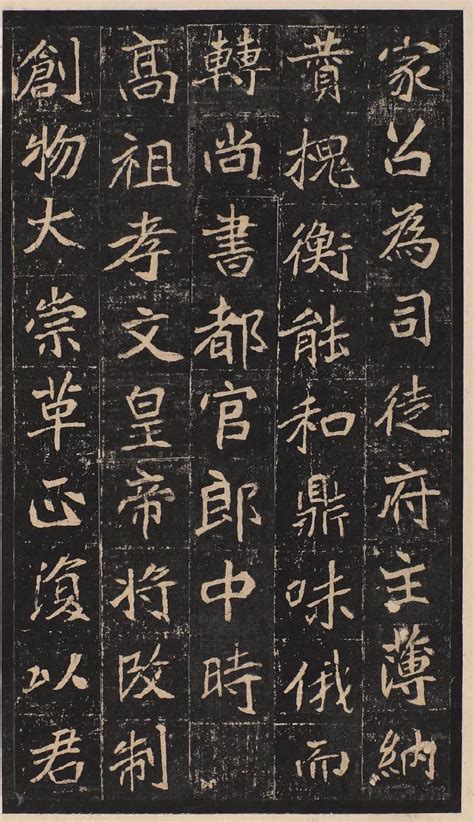 家公為司徒府主薄納
賛槐衡能和鼎味俄而
轉尚書都官郎中時
高祖孝文皇帝将改制
創物大崇革正復以君